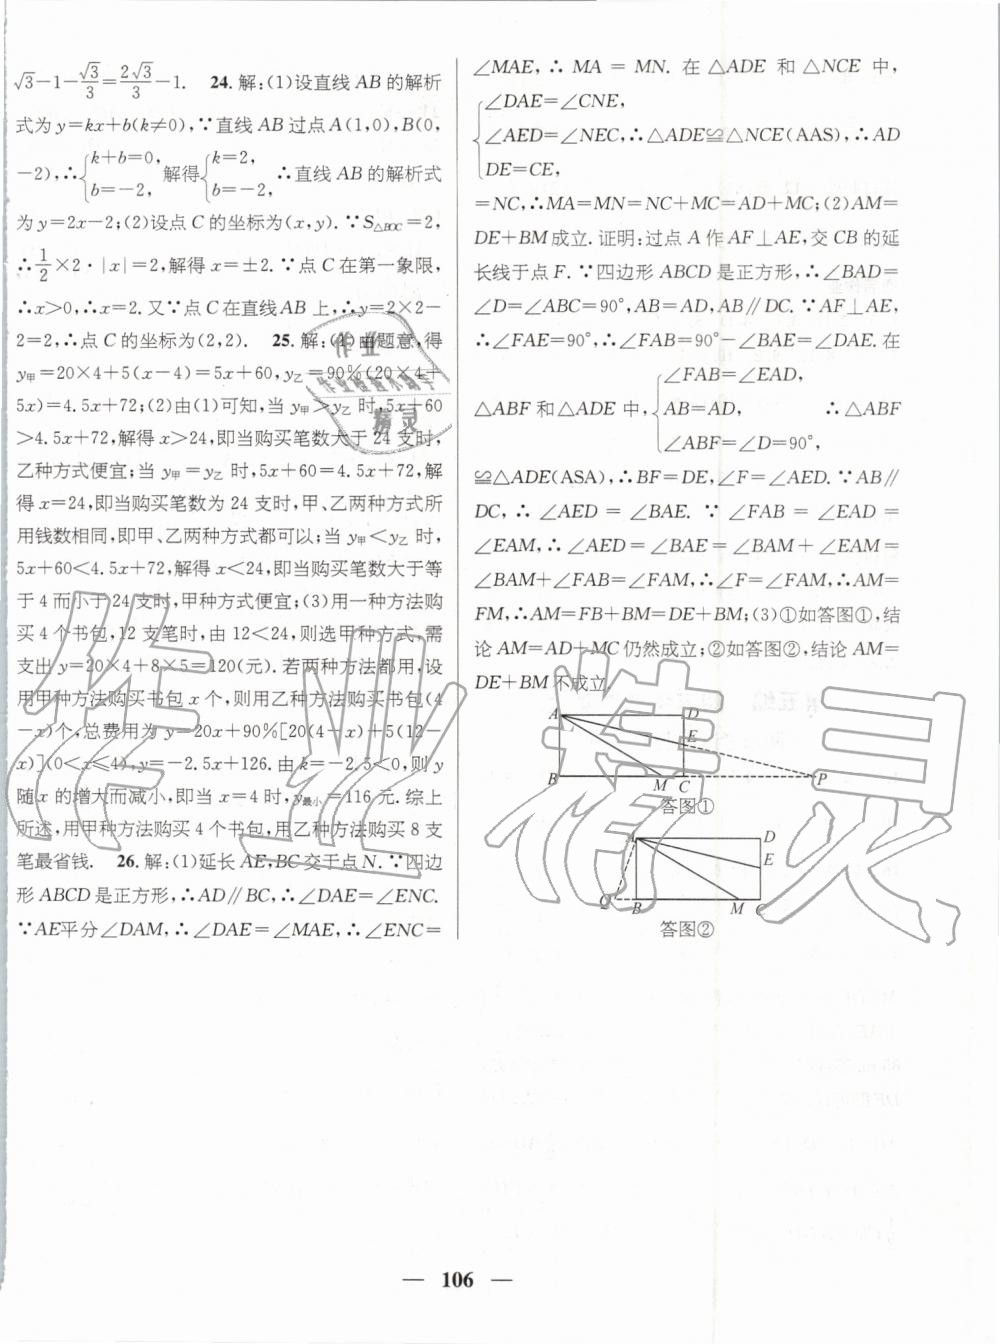 √3−1−√3/3=2√3/3−1. 24. 解:(1)设直线 AB 的解析
式为 y=kx+b(k≠0),∵直线 AB 过点 A(1,0),B(0,
−2),∴{k+b=0, b=−2, 解得{k=2, b=−2, ∴直线 AB 的解析式
为 y=2x−2;(2)设点 C 的坐标为(x,y).∵S△BOC=2,
∴1/2×2·|x|=2,解得 x=±2.∵点 C 在第一象限,
∴x>0,∴x=2.又∵点 C 在直线 AB 上,∴y=2×2−
2=2,∴点 C 的坐标为(2,2). 25. 解:(1)由题意,得
y甲=20×4+5(x−4)=5x+60,y乙=90%(20×4+
5x)=4.5x+72;(2)由(1)可知,当 y甲>y乙 时,5x+60
>4.5x+72,解得 x>24,即当购买笔数大于 24 支时,
乙种方式便宜;当 y甲=y乙 时,5x+60=4.5x+72,解
得 x=24,即当购买笔数为 24 支时,甲、乙两种方式所
用钱数相同,即甲、乙两种方式都可以;当 y甲<y乙 时,
5x+60<4.5x+72,解得 x<24,即当购买笔数大于等
于 4 而小于 24 支时,甲种方式便宜;(3)用一种方法购
买 4 个书包,12 支笔时,由 12<24,则选甲种方式,需
支出 y=20×4+8×5=120(元).若两种方法都用,设
用甲种方法购买书包 x 个,则用乙种方法购买书包(4
−x)个,总费用为 y=20x+90%[20(4−x)+5(12−
x)](0<x≤4),y=−2.5x+126.由 k=−2.5<0,则 y
随 x 的增大而减小,即当 x=4 时,y最小=116 元.综上
所述,用甲种方法购买 4 个书包,用乙种方法购买 8 支
笔最省钱. 26. 解:(1)延长 AE,BC 交于点 N.∵四边
形 ABCD 是正方形,∴AD∥BC,∴∠DAE=∠ENC.
∵AE平分∠DAM,∴∠DAE=∠MAE,∴∠ENC=
∠MAE,∴MA=MN.在△ADE 和△NCE 中,
{∠DAE=∠CNE,
∠AED=∠NEC,∴△ADE≌△NCE(AAS),∴AD
DE=CE,
=NC,∴MA=MN=NC+MC=AD+MC;(2)AM=
DE+BM 成立.证明:过点 A 作 AF⊥AE,交 CB 的延
长线于点 F.∵四边形 ABCD 是正方形,∴∠BAD=
∠D=∠ABC=90°,AB=AD,AB∥DC.∵AF⊥AE,
∴∠FAE=90°,∴∠FAB=90°−∠BAE=∠DAE.在
{∠FAB=∠EAD,
△ABF 和△ADE 中, AB=AD, ∴△ABF
∠ABF=∠D=90°,
≌△ADE(ASA),∴BF=DE,∠F=∠AED.∵AB∥
DC,∴∠AED=∠BAE.∵∠FAB=∠EAD=
∠EAM,∴∠AED=∠BAE=∠BAM+∠EAM=
∠BAM+∠FAB=∠FAM,∴∠F=∠FAM,∴AM=
FM,∴AM=FB+BM=DE+BM;(3)①如答图①,结
论 AM=AD+MC 仍然成立;②如答图②,结论 AM=
DE+BM 不成立.
A D
E
B M C P
答图①
A D
E
Q B M C
答图②
— 106 —
作业精灵
作业
作业检查小助手
精灵